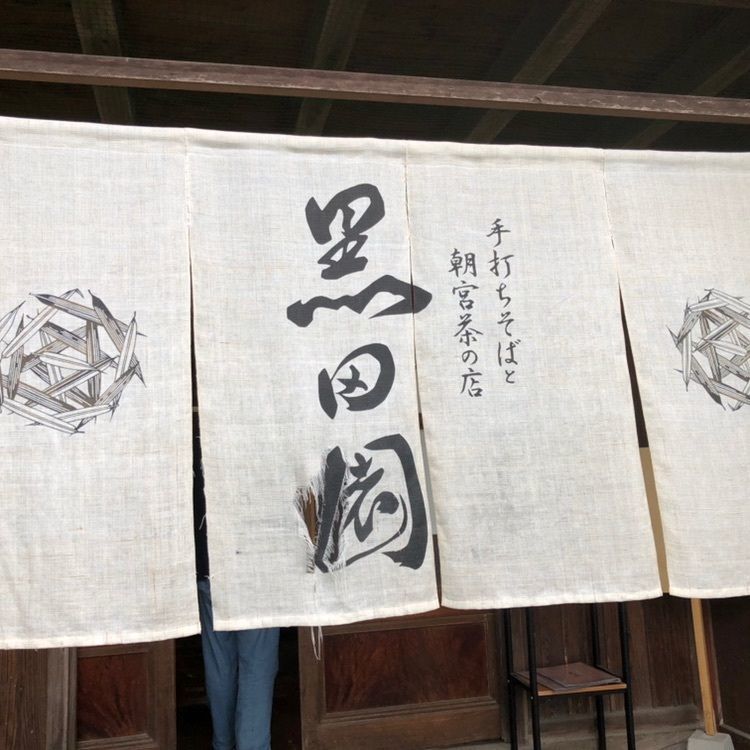 黒田園
手打ちそばと
朝宮茶の店